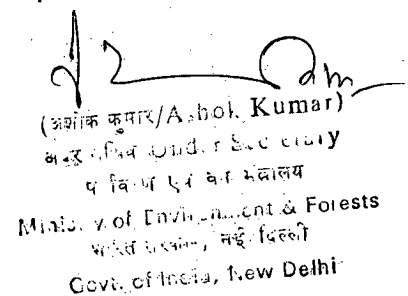 (अशोक कुमार/Ashok Kumar)
Under Secretary
एवं वन मंत्रालय
Ministry of Environment & Forests
भारत सरकार, नई दिल्ली
Govt. of India, New Delhi